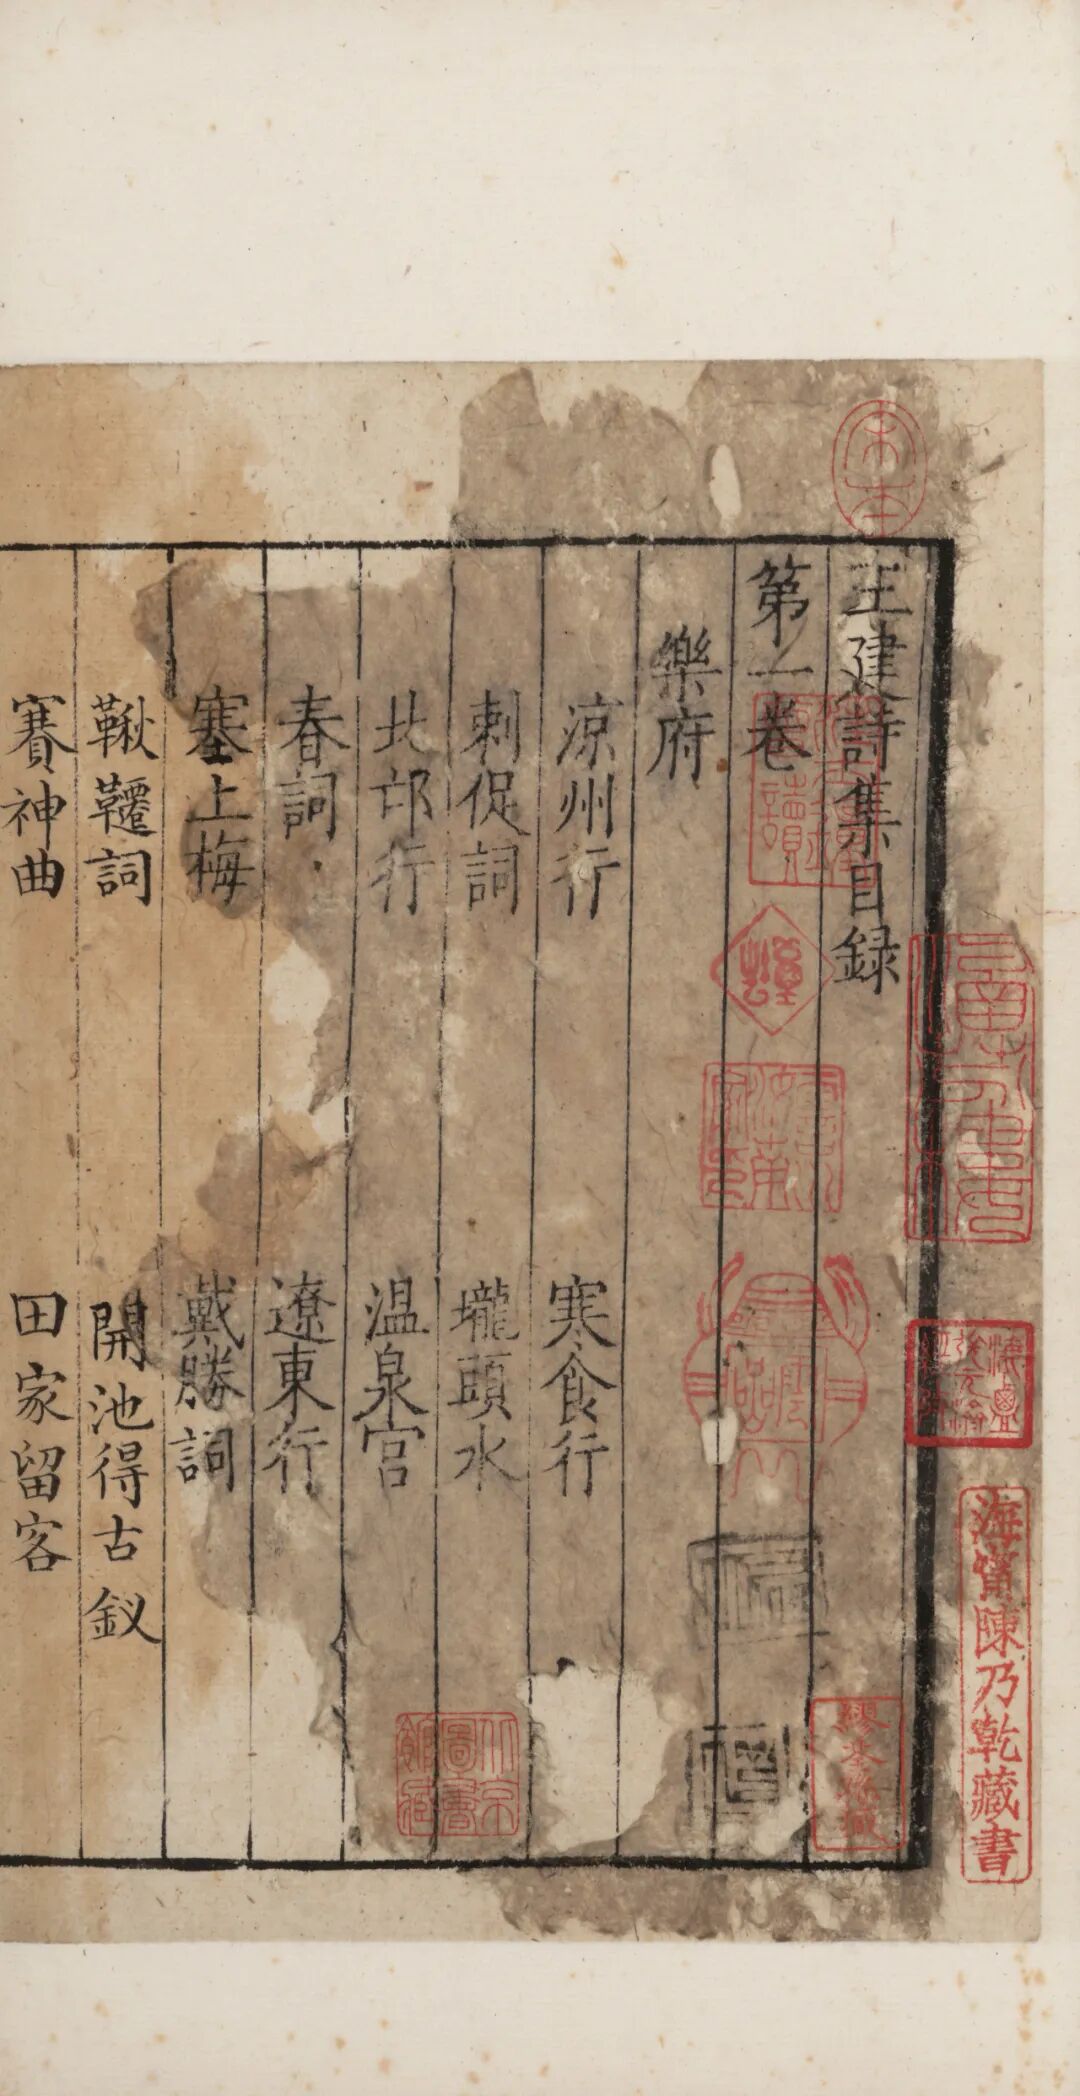 王建詩集目録
第一卷
樂府
涼州行 寒食行
刺促詞 壠頭水
北邙行 温泉宫
春詞 遼東行
塞上梅 戴勝詞
鞦韆詞 開池得古釵
賽神曲 田家留客
宋本
海甯陳乃乾藏書